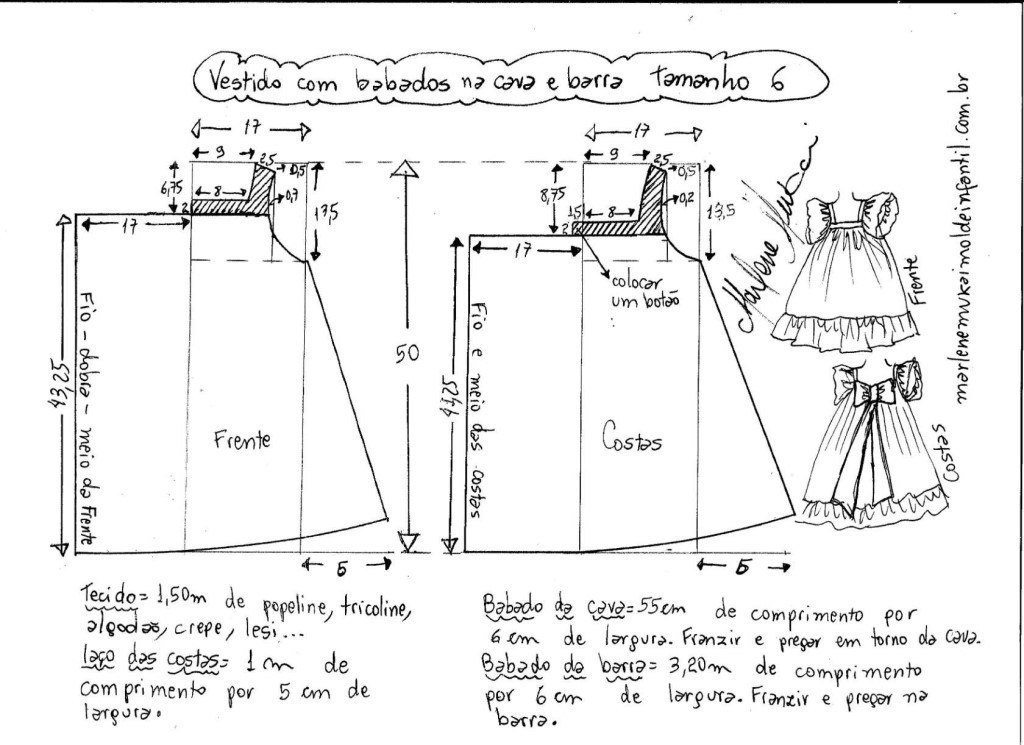 Vestido com babados na cava e barra tamanho 6
17
9
2,5
0,5
6,75
8
0,7
2
17
Fio - dobra - meio da Frente
43,25
Frente
5
50
17
9
2,5
0,5
8,75
1,5
8
0,2
2
13,5
17
colocar
um botão
Fio e meio das costas
41,25
Costas
5
Frente
Costas
marlenemukaimoldeinfantil.com.br
Tecido= 1,50m de popeline, tricoline,
algodão, crepe, lesi...
laço das costas= 1 m de
comprimento por 5 cm de
largura.
Babado da cava= 55cm de comprimento por
6 cm de largura. Franzir e pregar em torno da cava.
Babado da barra= 3,20m de comprimento
por 6 cm de largura. Franzir e pregar na
barra.